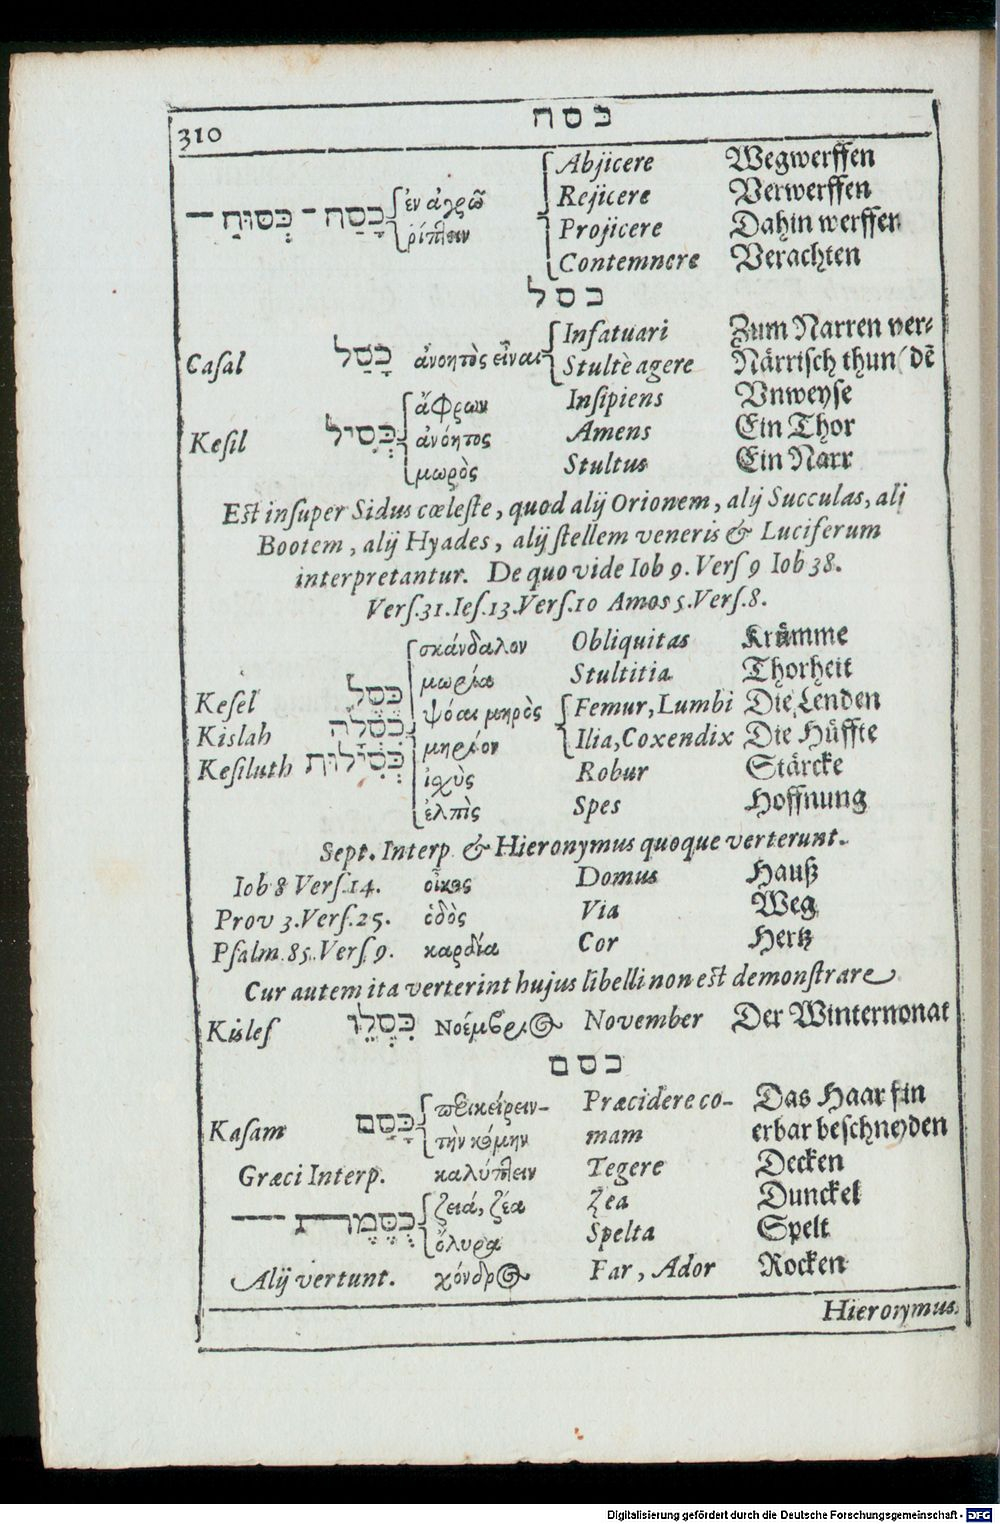 310 כסה
Abjicere Wegwerffen
ἐν ἀγρῷ Rejicere Verwerffen
כָּסַח — כְּסוּחַ — ῥίπτειν Projicere Dahin werffen
Contemnere Verachten
כסל
Infatuari Zum Narren ver⸗
Casal כָּסַל ἀνοητὸς εἶναι Stultè agere Närrisch thun (dē
ἄφρων Insipiens Vnweyse
Kesil כְּסִיל ἀνόητος Amens Ein Thor
μωρὸς Stultus Ein Narr
Est insuper Sidus cœleste, quod alij Orionem, alij Succulas, alij
Bootem, alij Hyades, alij stellem veneris & Luciferum
interpretantur. De quo vide Iob 9. Vers 9 Iob 38.
Vers. 31. Ies. 13. Vers. 10 Amos 5. Vers. 8.
σκάνδαλον Obliquitas Krümme
μωρία Stultitia Thorheit
Kesel כֶּסֶל ψόαι μηρὸς Femur, Lumbi Die Lenden
Kislah כִּסְלָה μηρίον Ilia, Coxendix Die Hüffte
Kesiluth כְּסִילוּת ἰχὺς Robur Stärcke
ἐλπὶς Spes Hoffnung
Sept. Interp. & Hieronymus quoque verterunt.
Iob 8 Vers. 14. οἶκος Domus Hauß
Prov 3. Vers. 25. ὁδὸς Via Weg
Psalm. 85. Vers. 9. καρδία Cor Hertz
Cur autem ita verterint hujus libelli non est demonstrare
Kislef כִּסְלֵו Νοέμβριος November Der Winternonat
כסם
περικείρειν- Præcidere co- Das Haar fin
Kasam כָּסַם τὴν κόμην mam erbar beschneyden
Græci Interp. καλύπτειν Tegere Decken
ζειά, ζέα Zea Dunckel
כֻּסֶּמֶת — ὄλυρα Spelta Spelt
Alij vertunt. χόνδρος Far, Ador Rocken
Hieronymus.
Digitalisierung gefördert durch die Deutsche Forschungsgemeinschaft - DFG